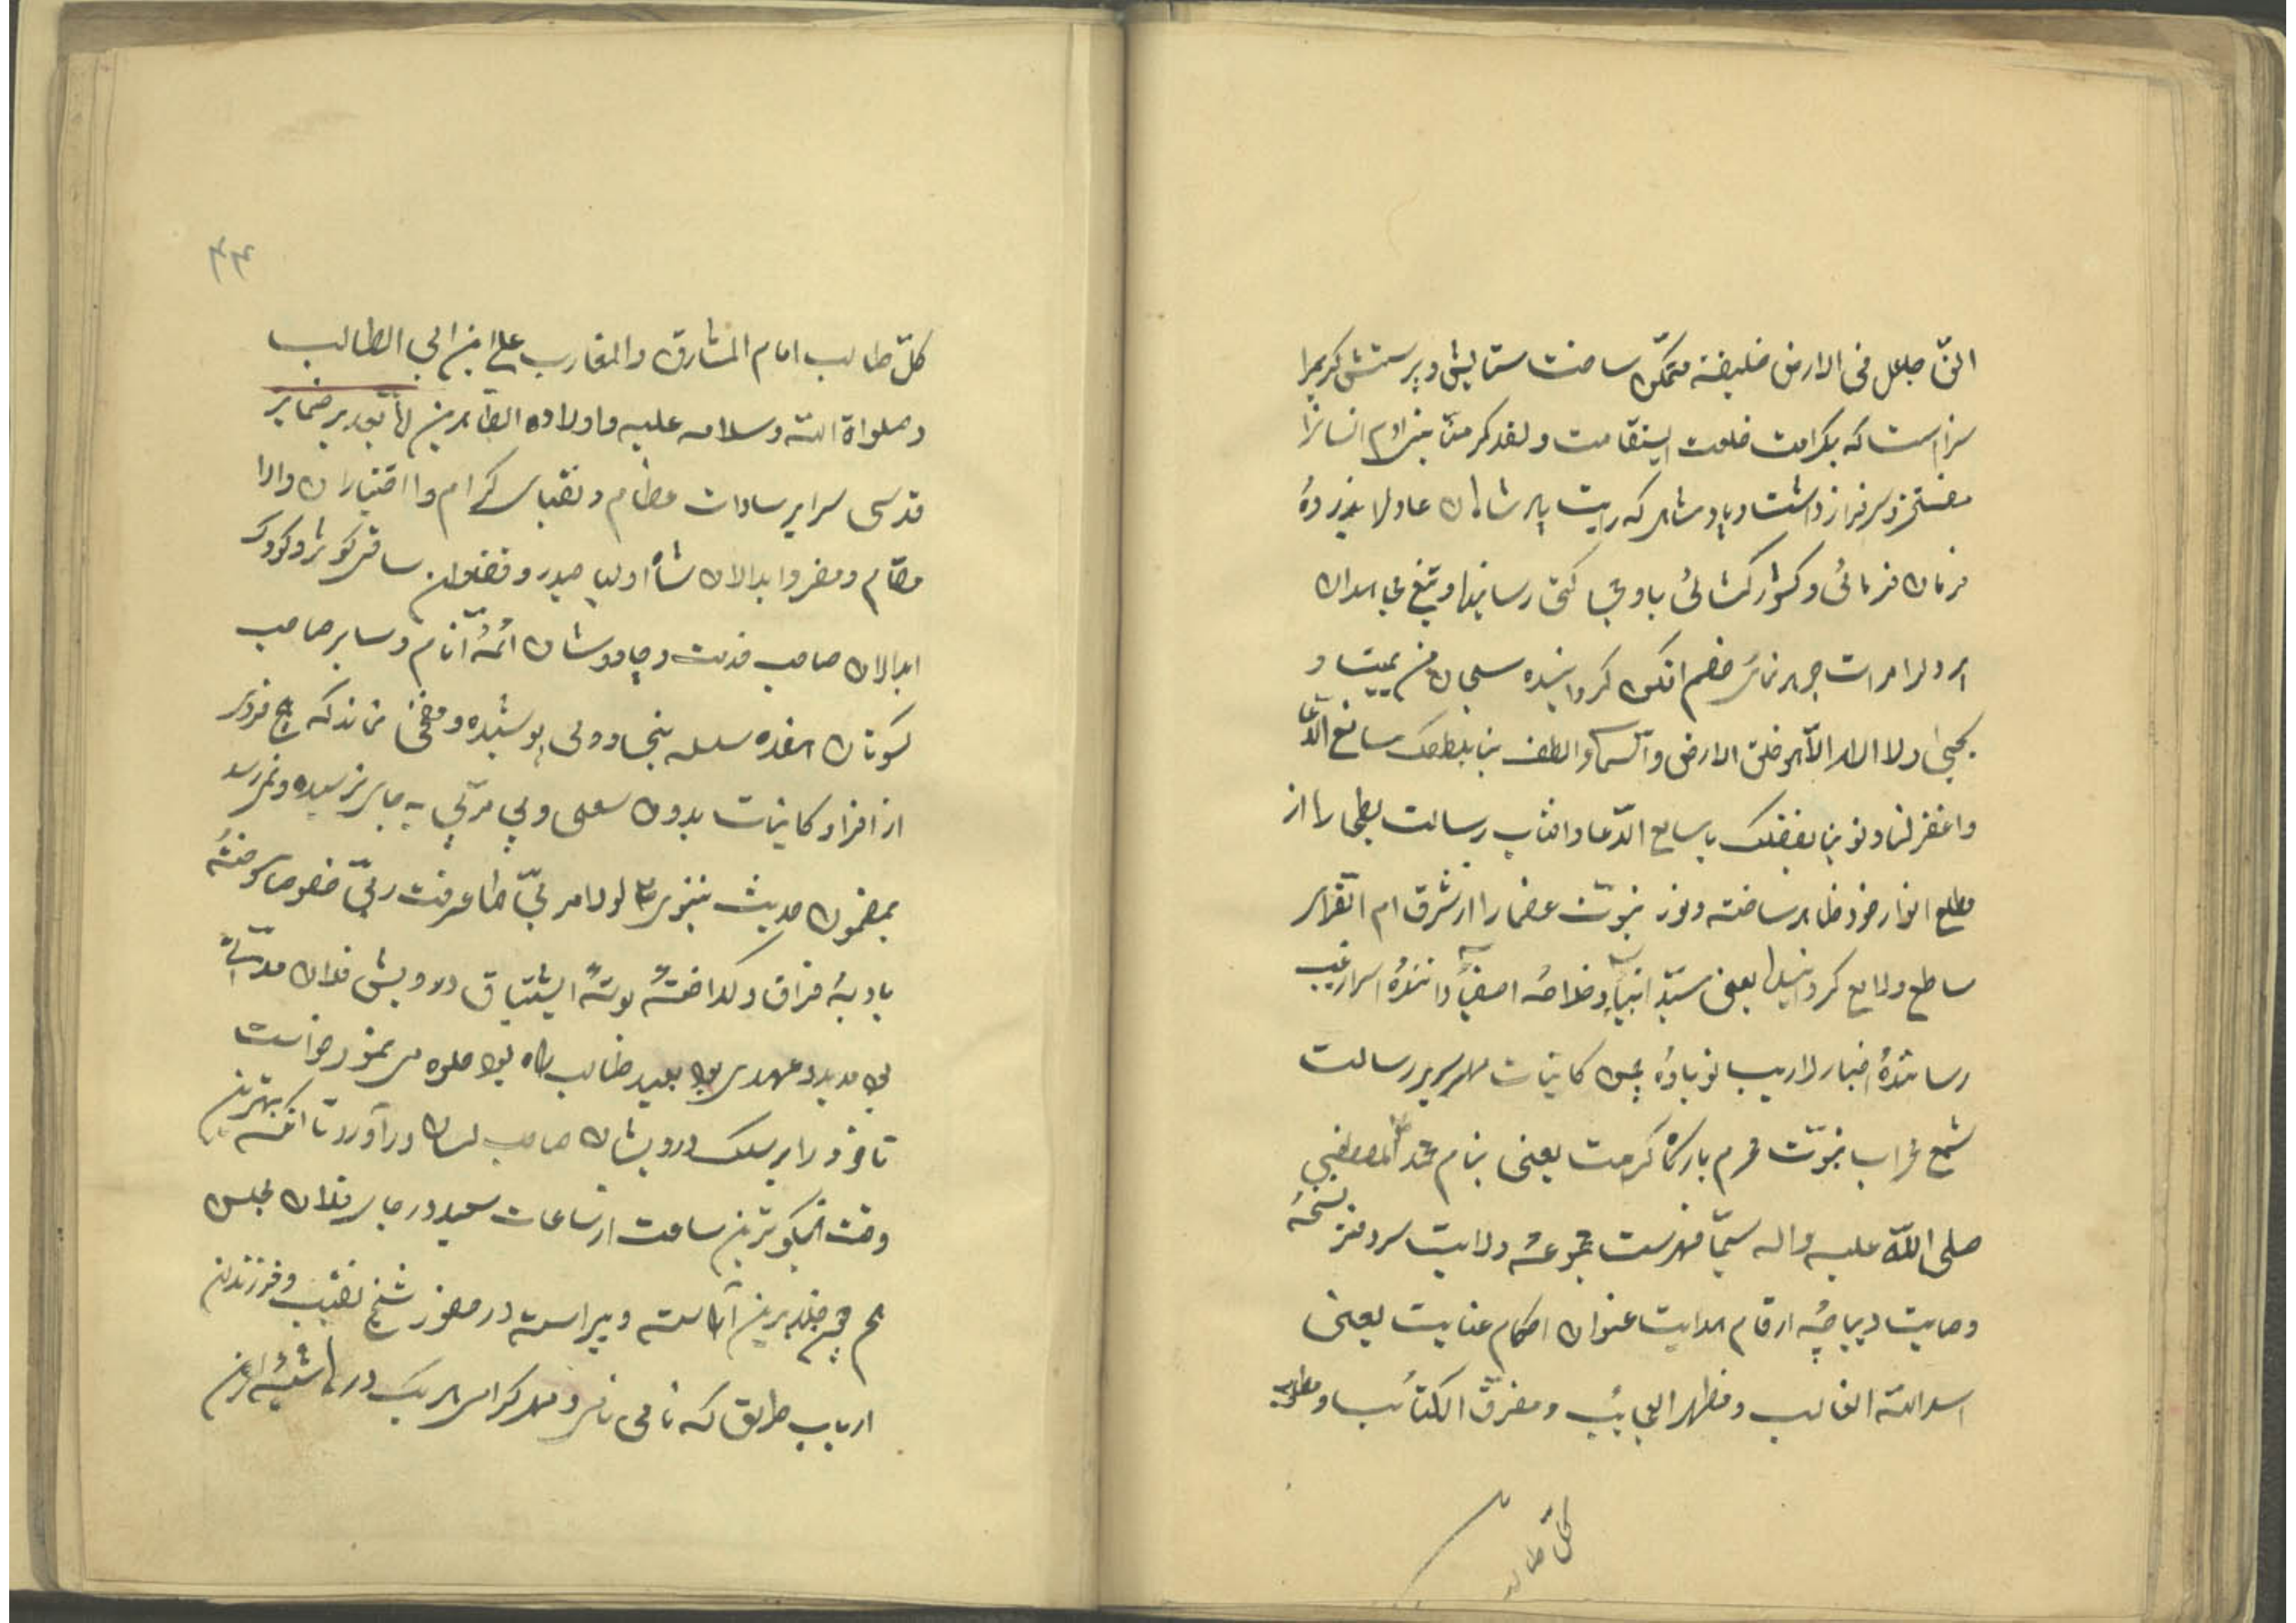 جاعل فی الارض خلیفه متمکن ساخت ستایش و پرستش کریمرا
سزاست که بکرامت خلعت استقامت ولقد کرمنا بنی ادم انسانرا
مفتخر و سرفراز داشت و پادشاهی که رایت پادشاهان عادلرا بذروهٔ
فرمان فرمائی و کشور کشائی باوج رسانید و تیغ
خصم افکن کردانیده سبحان من یمیت و
یحیی ولا اله الا هو خلق الارض والسما والطف بنا بلطفک سامع الدعا
واغفر لنا ذنوبنا بفضلک یا سامع الدعا وافتاب رسالت بطحا را از
مطلع انوار خود ظاهر ساخته ونور نبوت را از شرق ام القری
ساطع ولامع کردانید یعنی سید انبیا و خلاصهٔ اصفیا دانندهٔ اسرار غیب
رسانندهٔ اخبار لاریب نوباوهٔ چمن کاینات سریر رسالت
شمع محراب نبوت محرم بارکاه کرمت یعنی بنام محمد المصطفی
صلی الله علیه واله سیما فهرست مجموعه ولایت سردفتر نسخهٔ
وصایت دیباچهٔ ارقام هدایت عنوان احکام عنایت یعنی
اسد الله الغالب ومظهر العجائب ومفرق الکتائب و مطلوب
کل طالب
۴۴
کل طالب امام المشارق والمغارب علی ابن ابی الطالب
وصلواة الله وسلامه علیه واولاده الطاهرین ضمایر
قدسی سرایر سادات عظام و نقبای کرام و اختیاران والا
مقام و ابدالان شاه اولیا حیدر و ساقی کوثر و کوچک
ابدالان صاحب خدمت و چاوشان ائمهٔ انام و سایر صاحب
کسوتان هفده سلسله پوشیده و مخفی نماند که هیچ فردی
از افراد کاینات بدون سعی و بی مربی به جایی نرسیده و نمیرسد
بمضمون حدیث نبوی لولا مربی ما عرفت ربی خصوصا سوختهٔ
بادیهٔ فراق و کداختهٔ بوتهٔ اشتیاق درویش فلان مدتی
مدید و عهدی بعید طالب راه بود جلوه می نمود خواست
تا خود را بسلک درویشان صاحب در آورد تا انکه بهترین
وقت نیکوترین ساعت از ساعات سعید در جای فلان مجلس
خلد برین آراسته و پیراسته در حضور شیخ نقیب و فرزندان
ارباب طریق که نامی نامی و مهر کرامی هر یک در حاشیهٔ این